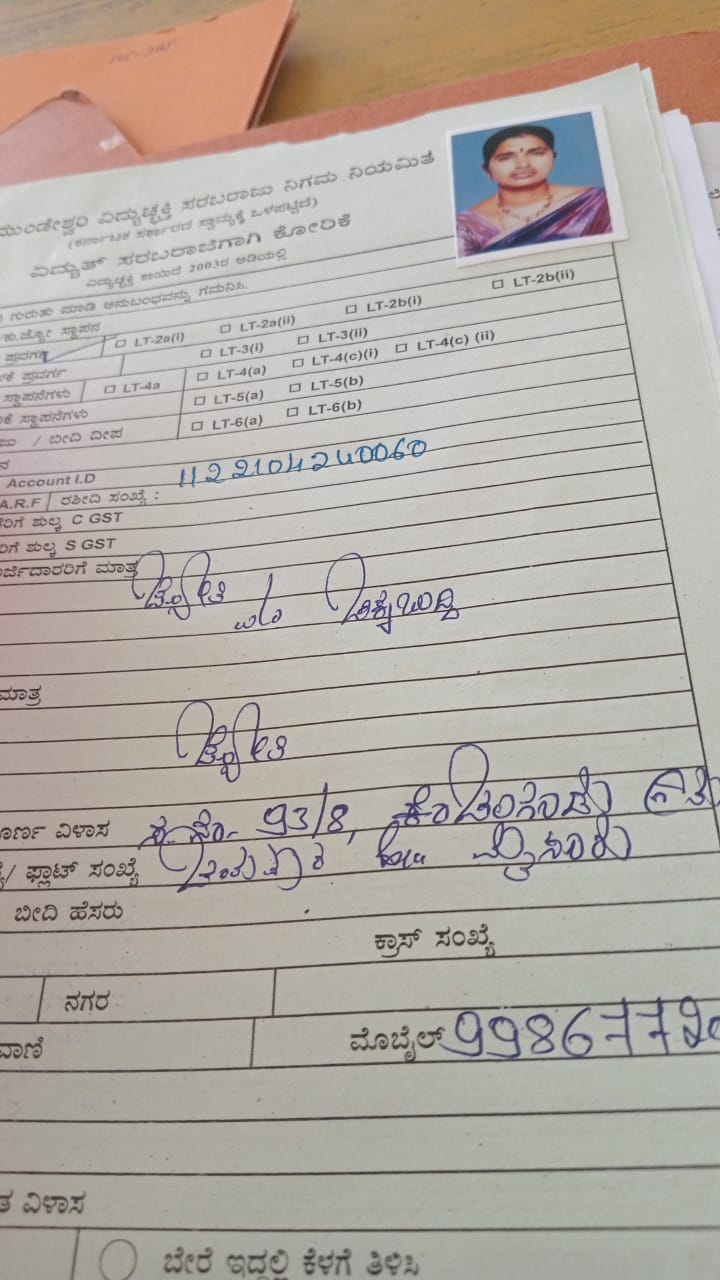 ಮುಂಡೇಶ್ವರಿ ವಿದ್ಯುಚ್ಛಕ್ತಿ ಸರಬರಾಜು ನಿಗಮ ನಿಯಮಿತ
(ಕರ್ನಾಟಕ ಸರ್ಕಾರದ ಸ್ವಾಮ್ಯಕ್ಕೆ ಒಳಪಟ್ಟಿದೆ)
ವಿದ್ಯುತ್ ಸರಬರಾಜಿಗಾಗಿ ಕೋರಿಕೆ
ವಿದ್ಯುಚ್ಛಕ್ತಿ ಕಾಯಿದೆ 2003ರ ಅಡಿಯಲ್ಲಿ
ಗುರುತು ಮಾಡಿ ಅನುಬಂಧವನ್ನು ಗಮನಿಸಿ.
ಕು.ಜ್ಯೋ ಸ್ಥಾಪನ
ಪ್ರವರ್ಗ LT-2a(i) LT-2a(ii) LT-2b(i) LT-2b(ii)
ಕೆ ಪ್ರವರ್ಗ LT-3(i) LT-3(ii)
ಸ್ಥಾಪನೆಗಳು LT-4a LT-4(a) LT-4(c)(i) LT-4(c) (ii)
ಕೆ ಸ್ಥಾಪನೆಗಳು LT-5(a) LT-5(b)
/ ಬೀದಿ ದೀಪ LT-6(a) LT-6(b)
Account I.D 1122104240060
A.R.F / ರಶೀದಿ ಸಂಖ್ಯೆ :
ರಿಗೆ ಶುಲ್ಕ C GST
ರಿಗೆ ಶುಲ್ಕ S GST
ರ್ಜಿದಾರರಿಗೆ ಮಾತ್ರ
ಜ್ಯೋತಿ
ಮಾತ್ರ
ಜ್ಯೋತಿ
ರ್ಣ ವಿಳಾಸ 93/8,
/ ಫ್ಲಾಟ್ ಸಂಖ್ಯೆ ಮೈಸೂರು
ಬೀದಿ ಹೆಸರು
ಕ್ರಾಸ್ ಸಂಖ್ಯೆ
ನಗರ
ವಾಣಿ ಮೊಬೈಲ್ 99867720
ತ ವಿಳಾಸ
ಬೇರೆ ಇದ್ದಲ್ಲಿ ಕೆಳಗೆ ತಿಳಿಸಿ